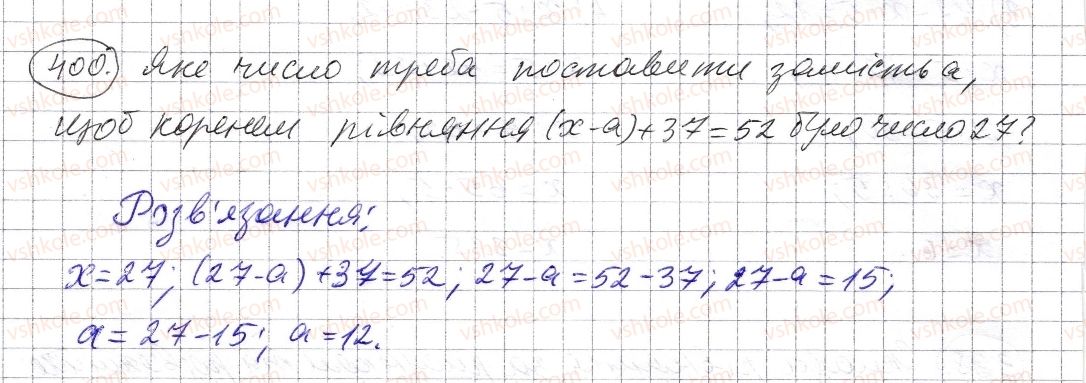 400. Яке число треба поставити замість a,
щоб коренем рівняння (x-a)+37=52 було число 27?
Розв'язання:
x=27; (27-a)+37=52; 27-a=52-37; 27-a=15;
a=27-15; a=12.